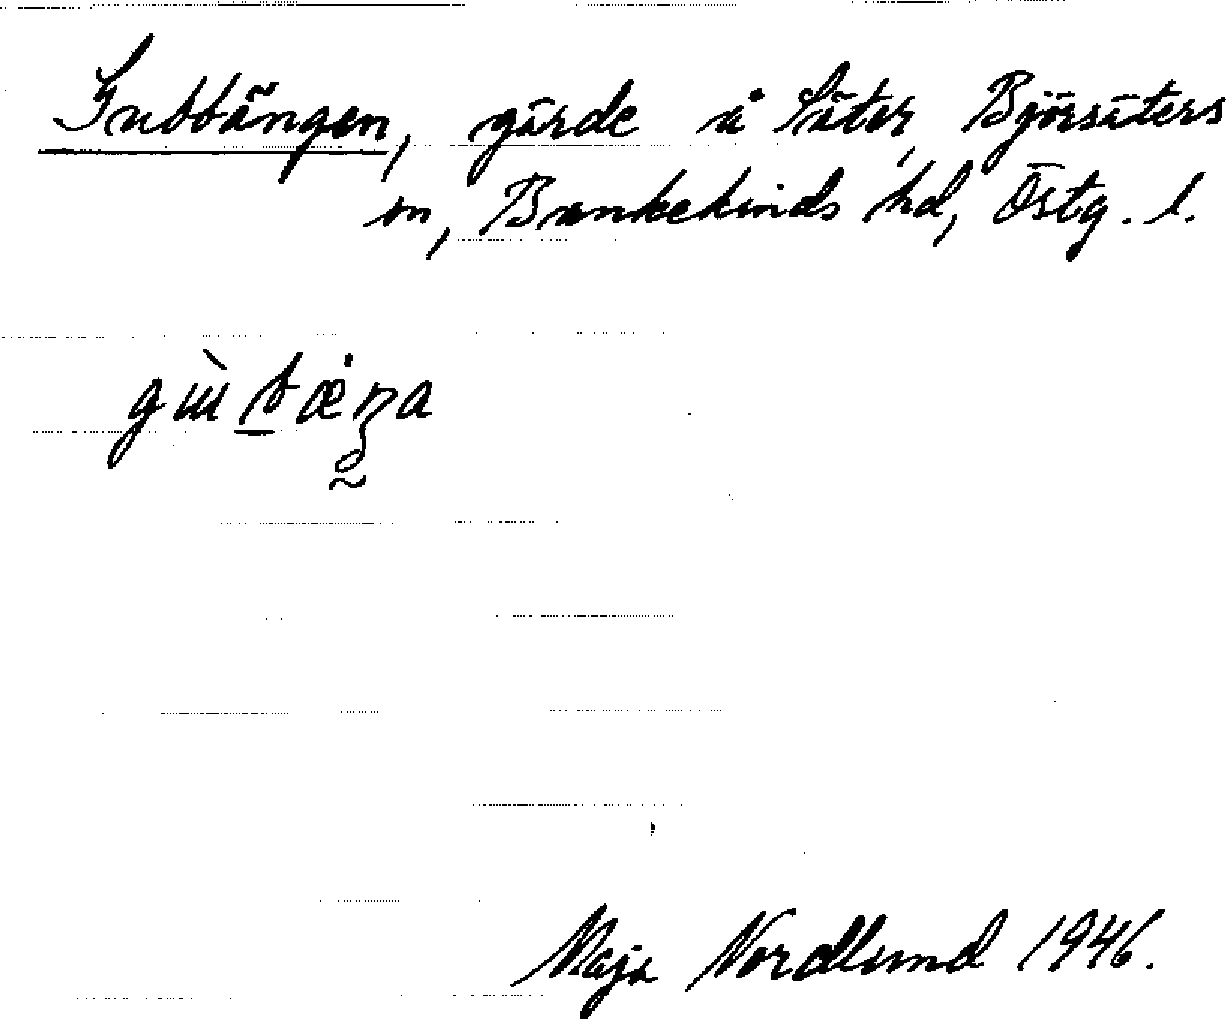 Gubbängen, gärde å Säter, Björsäters
sn, Bankekinds hd, Östg. l.
Maja Nordlund 1946.